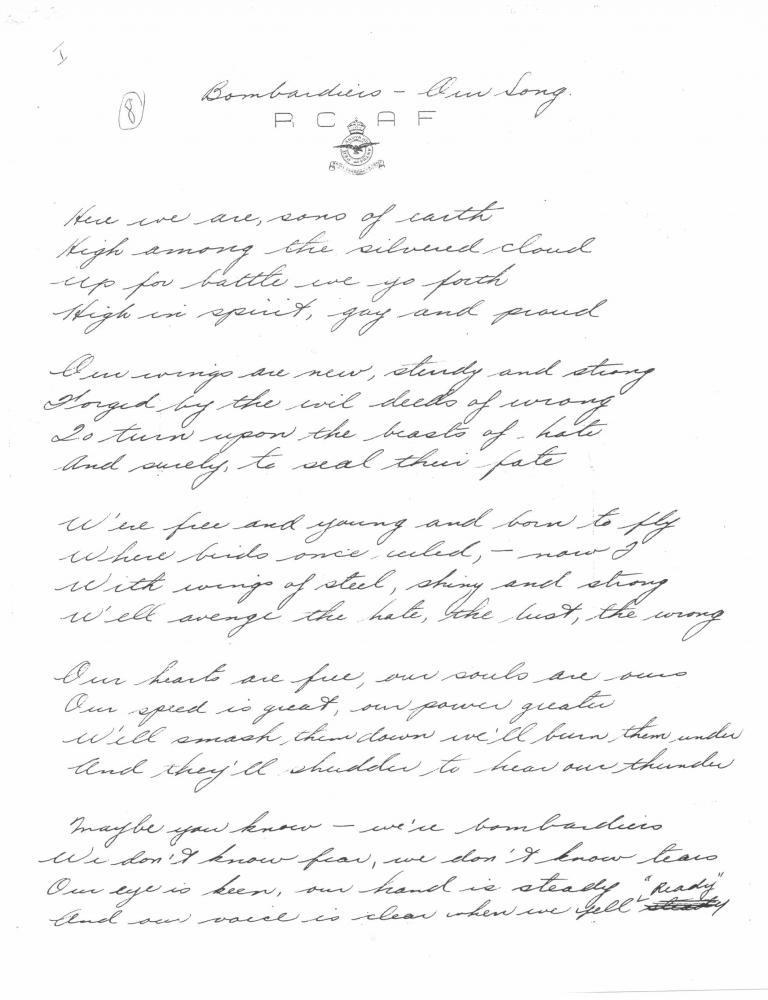 I
8
Bombardiers - Our Song.
R C A F
Here we are, sons of earth
High among the silvered cloud
up for battle we go forth
High in spirit, gay and proud
Our wings are new, sturdy and strong
Forged by the evil deeds of wrong
To turn upon the beasts of hate
And surely, to seal their fate
We're free and young and born to fly
Where birds once ruled, - now I
With wings of steel, shiny and strong
We'll avenge the hate, the lust, the wrong
Our hearts are free, our souls are ours
Our speed is great, our power greater
We'll smash them down we'll burn them under
And they'll shudder to hear our thunder
Maybe you know - we're bombardiers
We don't know fear, we don't know tears
Our eye is keen, our hand is steady
And our voice is clear when we yell "Ready" steady